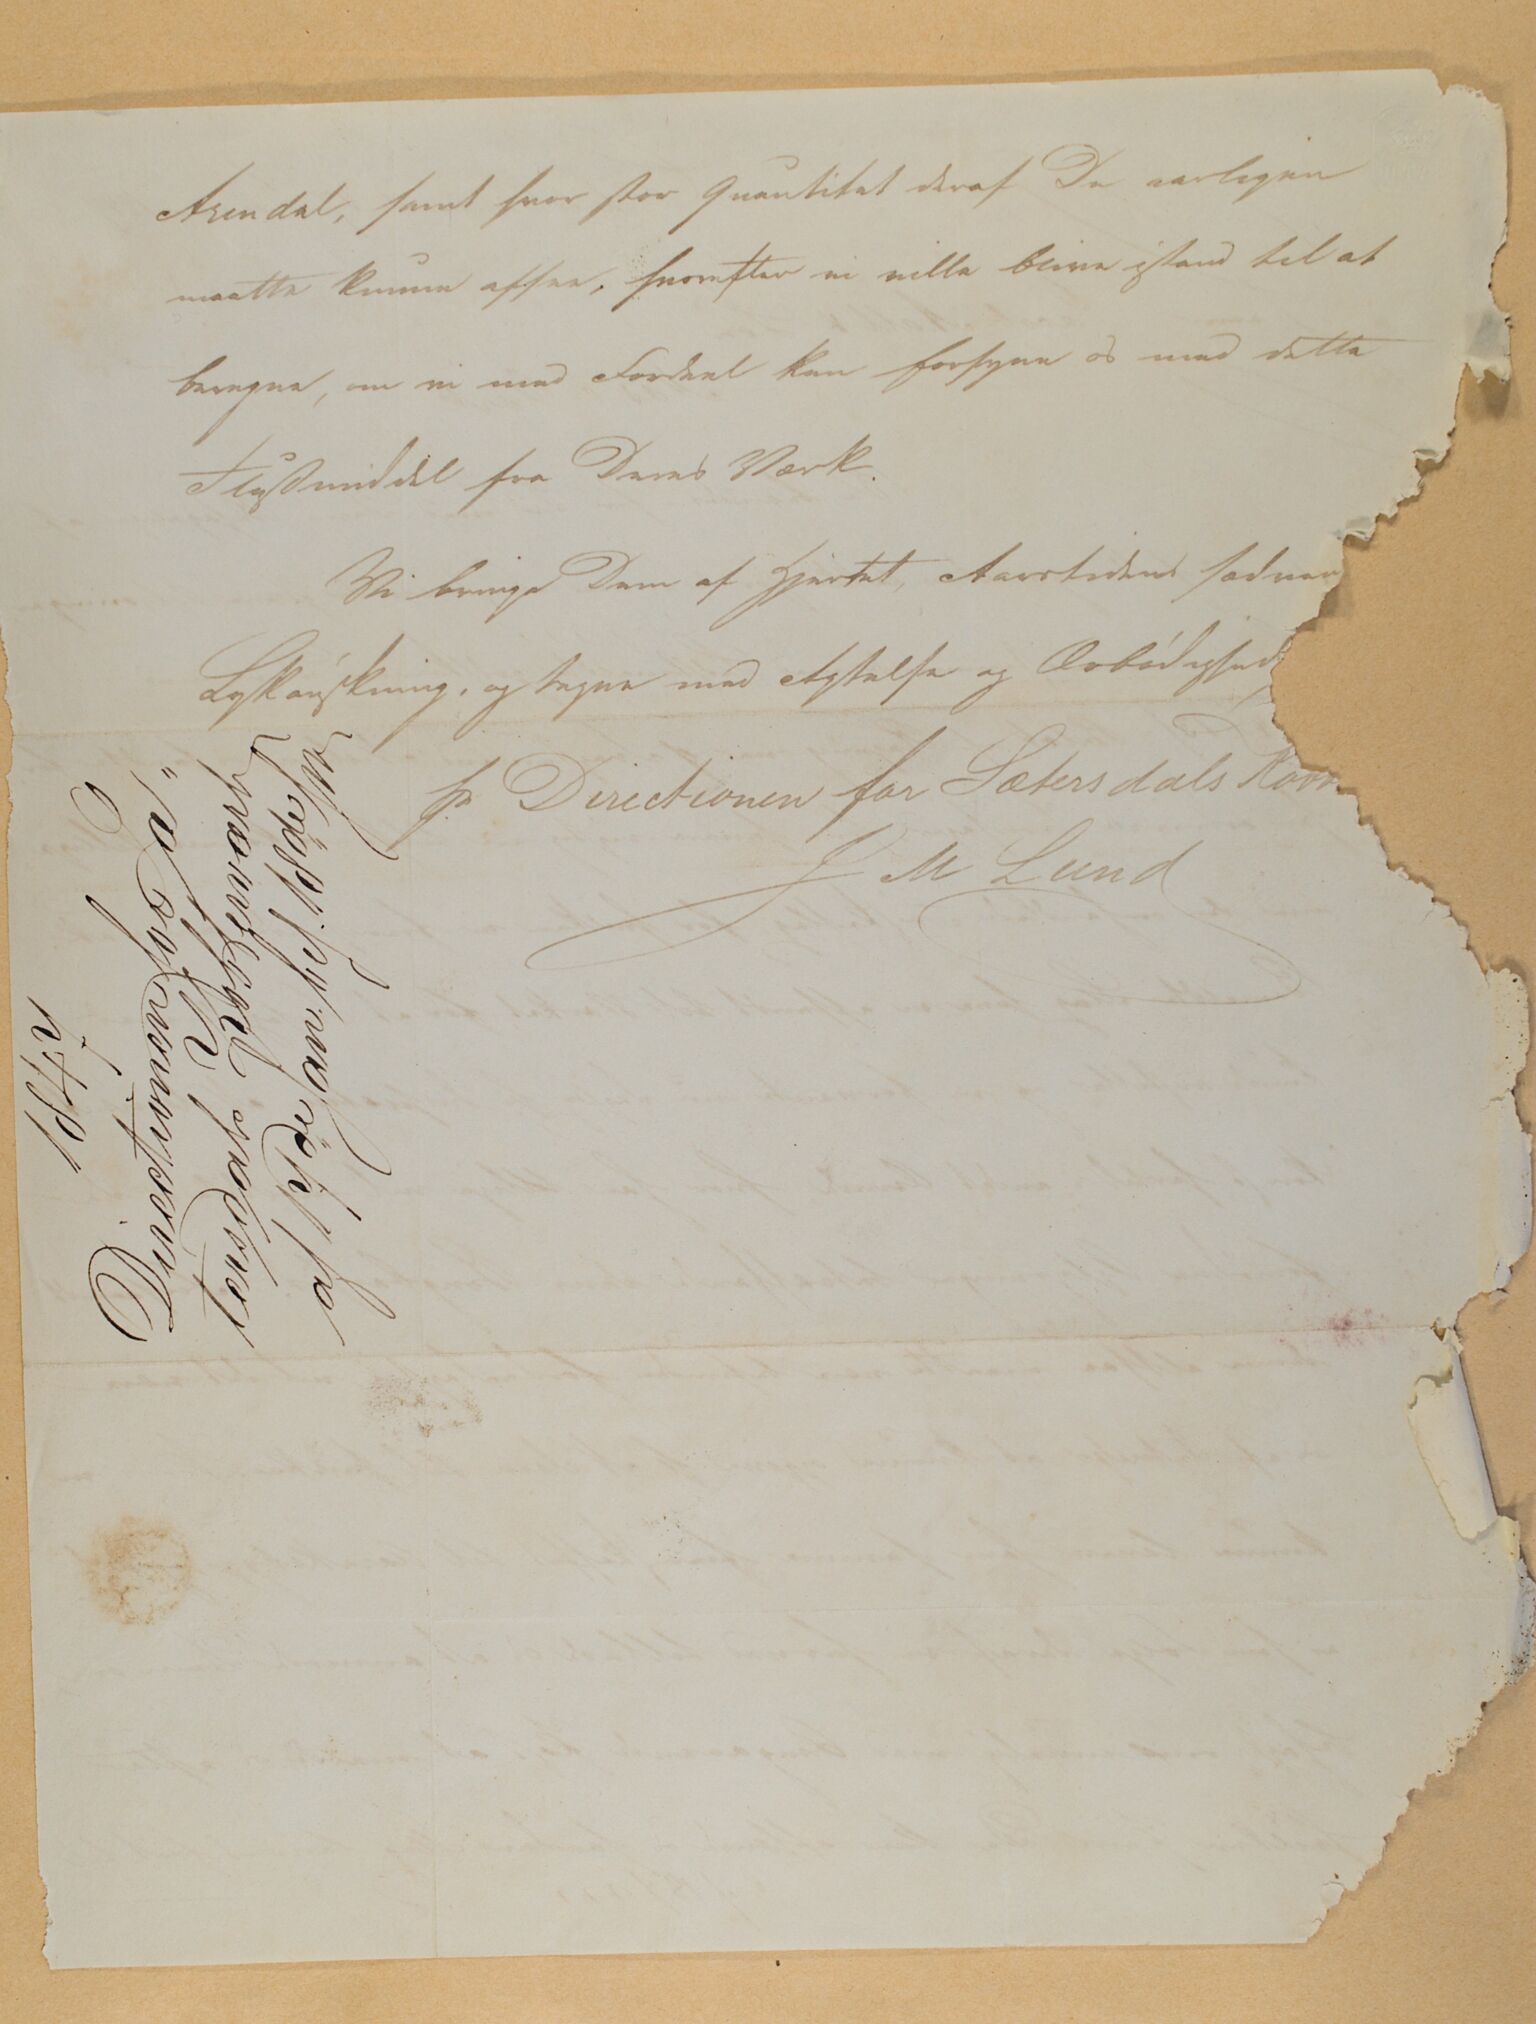 Arendal, samt hvor stor Quantitet deraf De aarligen
maatte kunne afsee, hvorefter vi ville blive istand til at
beregne, om vi med Fordeel kan forsyne os med dette
Flusmiddel fra Deres Værk.
Vi bringe Dem af Hjertet, Aarstidens sædvan
Lykønskning, og tegne med Agtelse og Ærbødighed
pr Directionen for Sætersdals Kobb
J M Lund
1842
Directionen for
Sætersdals Kobberværk
af